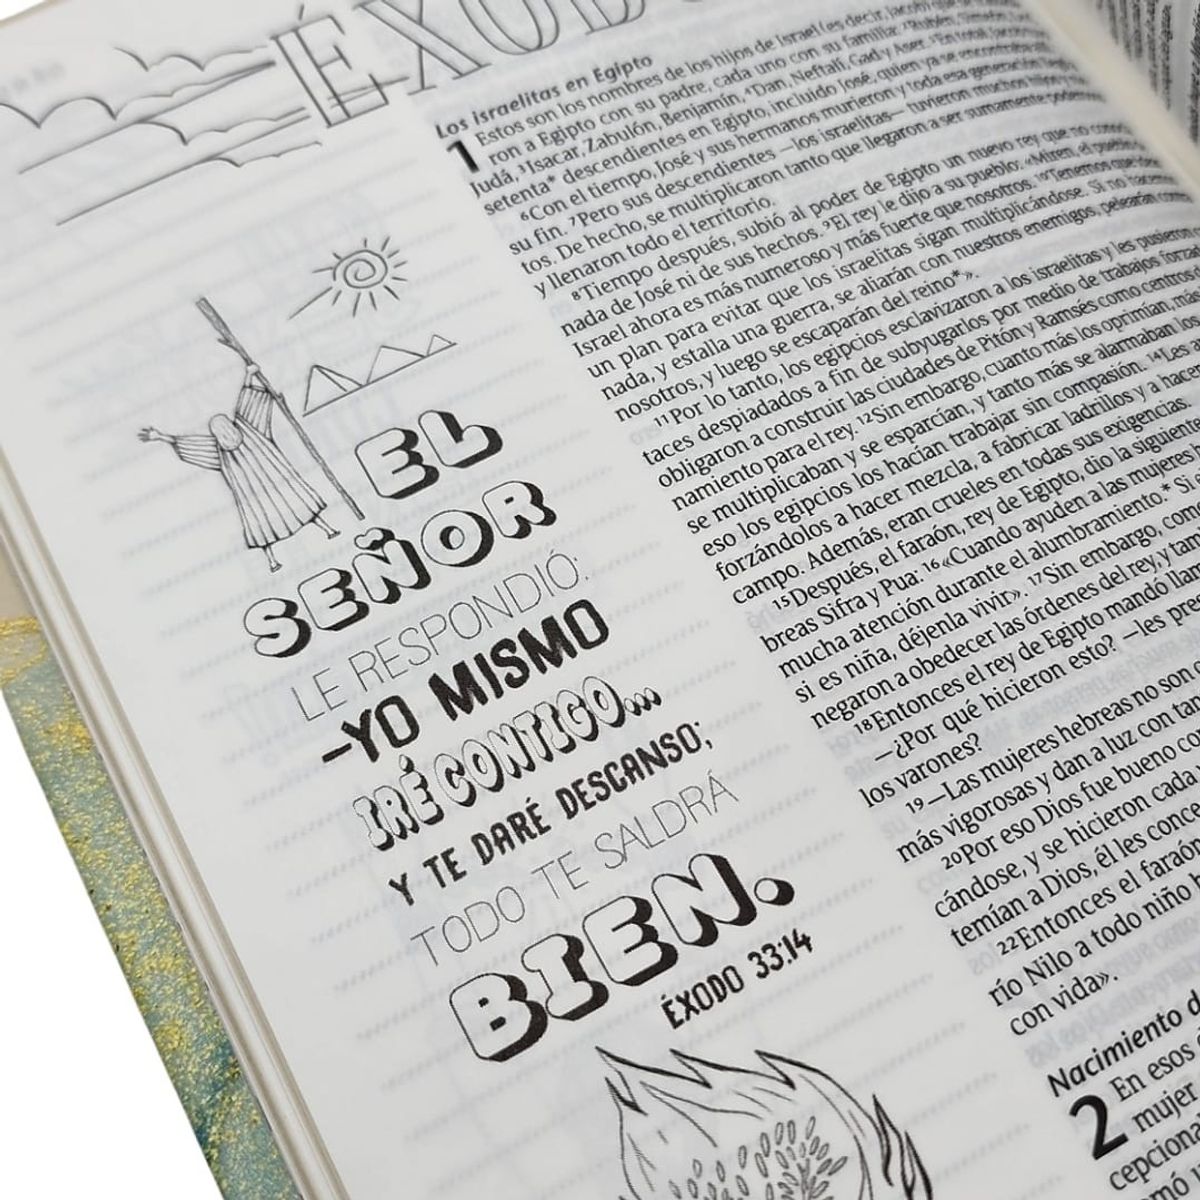 ÉXODO
EL
SEÑOR
LE RESPONDIÓ:
–YO MISMO
IRÉ CONTIGO...
Y TE DARÉ DESCANSO;
TODO TE SALDRÁ
BIEN.
ÉXODO 33:14
Los israelitas en Egipto
1 Estos son los nombres de los hijos de Israel (es decir, Jacob) que
ron a Egipto con su padre, cada uno con su familia: ²Rubén, Simeón,
Judá, ³Isacar, Zabulón, Benjamín, ⁴Dan, Neftalí, Gad y Aser. ⁵En total, Jacob
setenta* descendientes en Egipto, incluido José, quien ya se encontraba
⁶Con el tiempo, José y sus hermanos murieron y toda esa generación
su fin. ⁷Pero sus descendientes —los israelitas— tuvieron muchos hijos
tos. De hecho, se multiplicaron tanto que llegaron a ser sumamente
y llenaron todo el territorio.
⁸Tiempo después, subió al poder de Egipto un nuevo rey que no
nada de José ni de sus hechos. ⁹El rey le dijo a su pueblo: «Miren, el
Israel ahora es más numeroso y más fuerte que nosotros. ¹⁰Tenemos que
un plan para evitar que los israelitas sigan multiplicándose. Si no
nada, y estalla una guerra, se aliarán con nuestros enemigos, pelearán
nosotros, y luego se escaparán del reino*».
¹¹Por lo tanto, los egipcios esclavizaron a los israelitas y les pusieron
taces despiadados a fin de subyugarlos por medio de trabajos
obligaron a construir las ciudades de Pitón y Ramsés como centros
namiento para el rey. ¹²Sin embargo, cuanto más los oprimían, más
se multiplicaban y se esparcían, y tanto más se alarmaban los
eso los egipcios los hacían trabajar sin compasión. ¹⁴Les
forzándolos a hacer mezcla, a fabricar ladrillos y a hacer
campo. Además, eran crueles en todas sus exigencias.
¹⁵Después, el faraón, rey de Egipto, dio la siguiente
breas Sifra y Pua: ¹⁶«Cuando ayuden a las mujeres
mucha atención durante el alumbramiento.* Si
si es niña, déjenla vivir». ¹⁷Sin embargo, como
negaron a obedecer las órdenes del rey, y
¹⁸Entonces el rey de Egipto mandó
—¿Por qué hicieron esto? —les
los varones?
¹⁹—Las mujeres hebreas no son
más vigorosas y dan a luz con
²⁰Por eso Dios fue bueno
cándose, y se hicieron cada
temían a Dios, él les
²²Entonces el faraón
río Nilo a todo niño
con vida».
Nacimiento
2 En esos
mujer